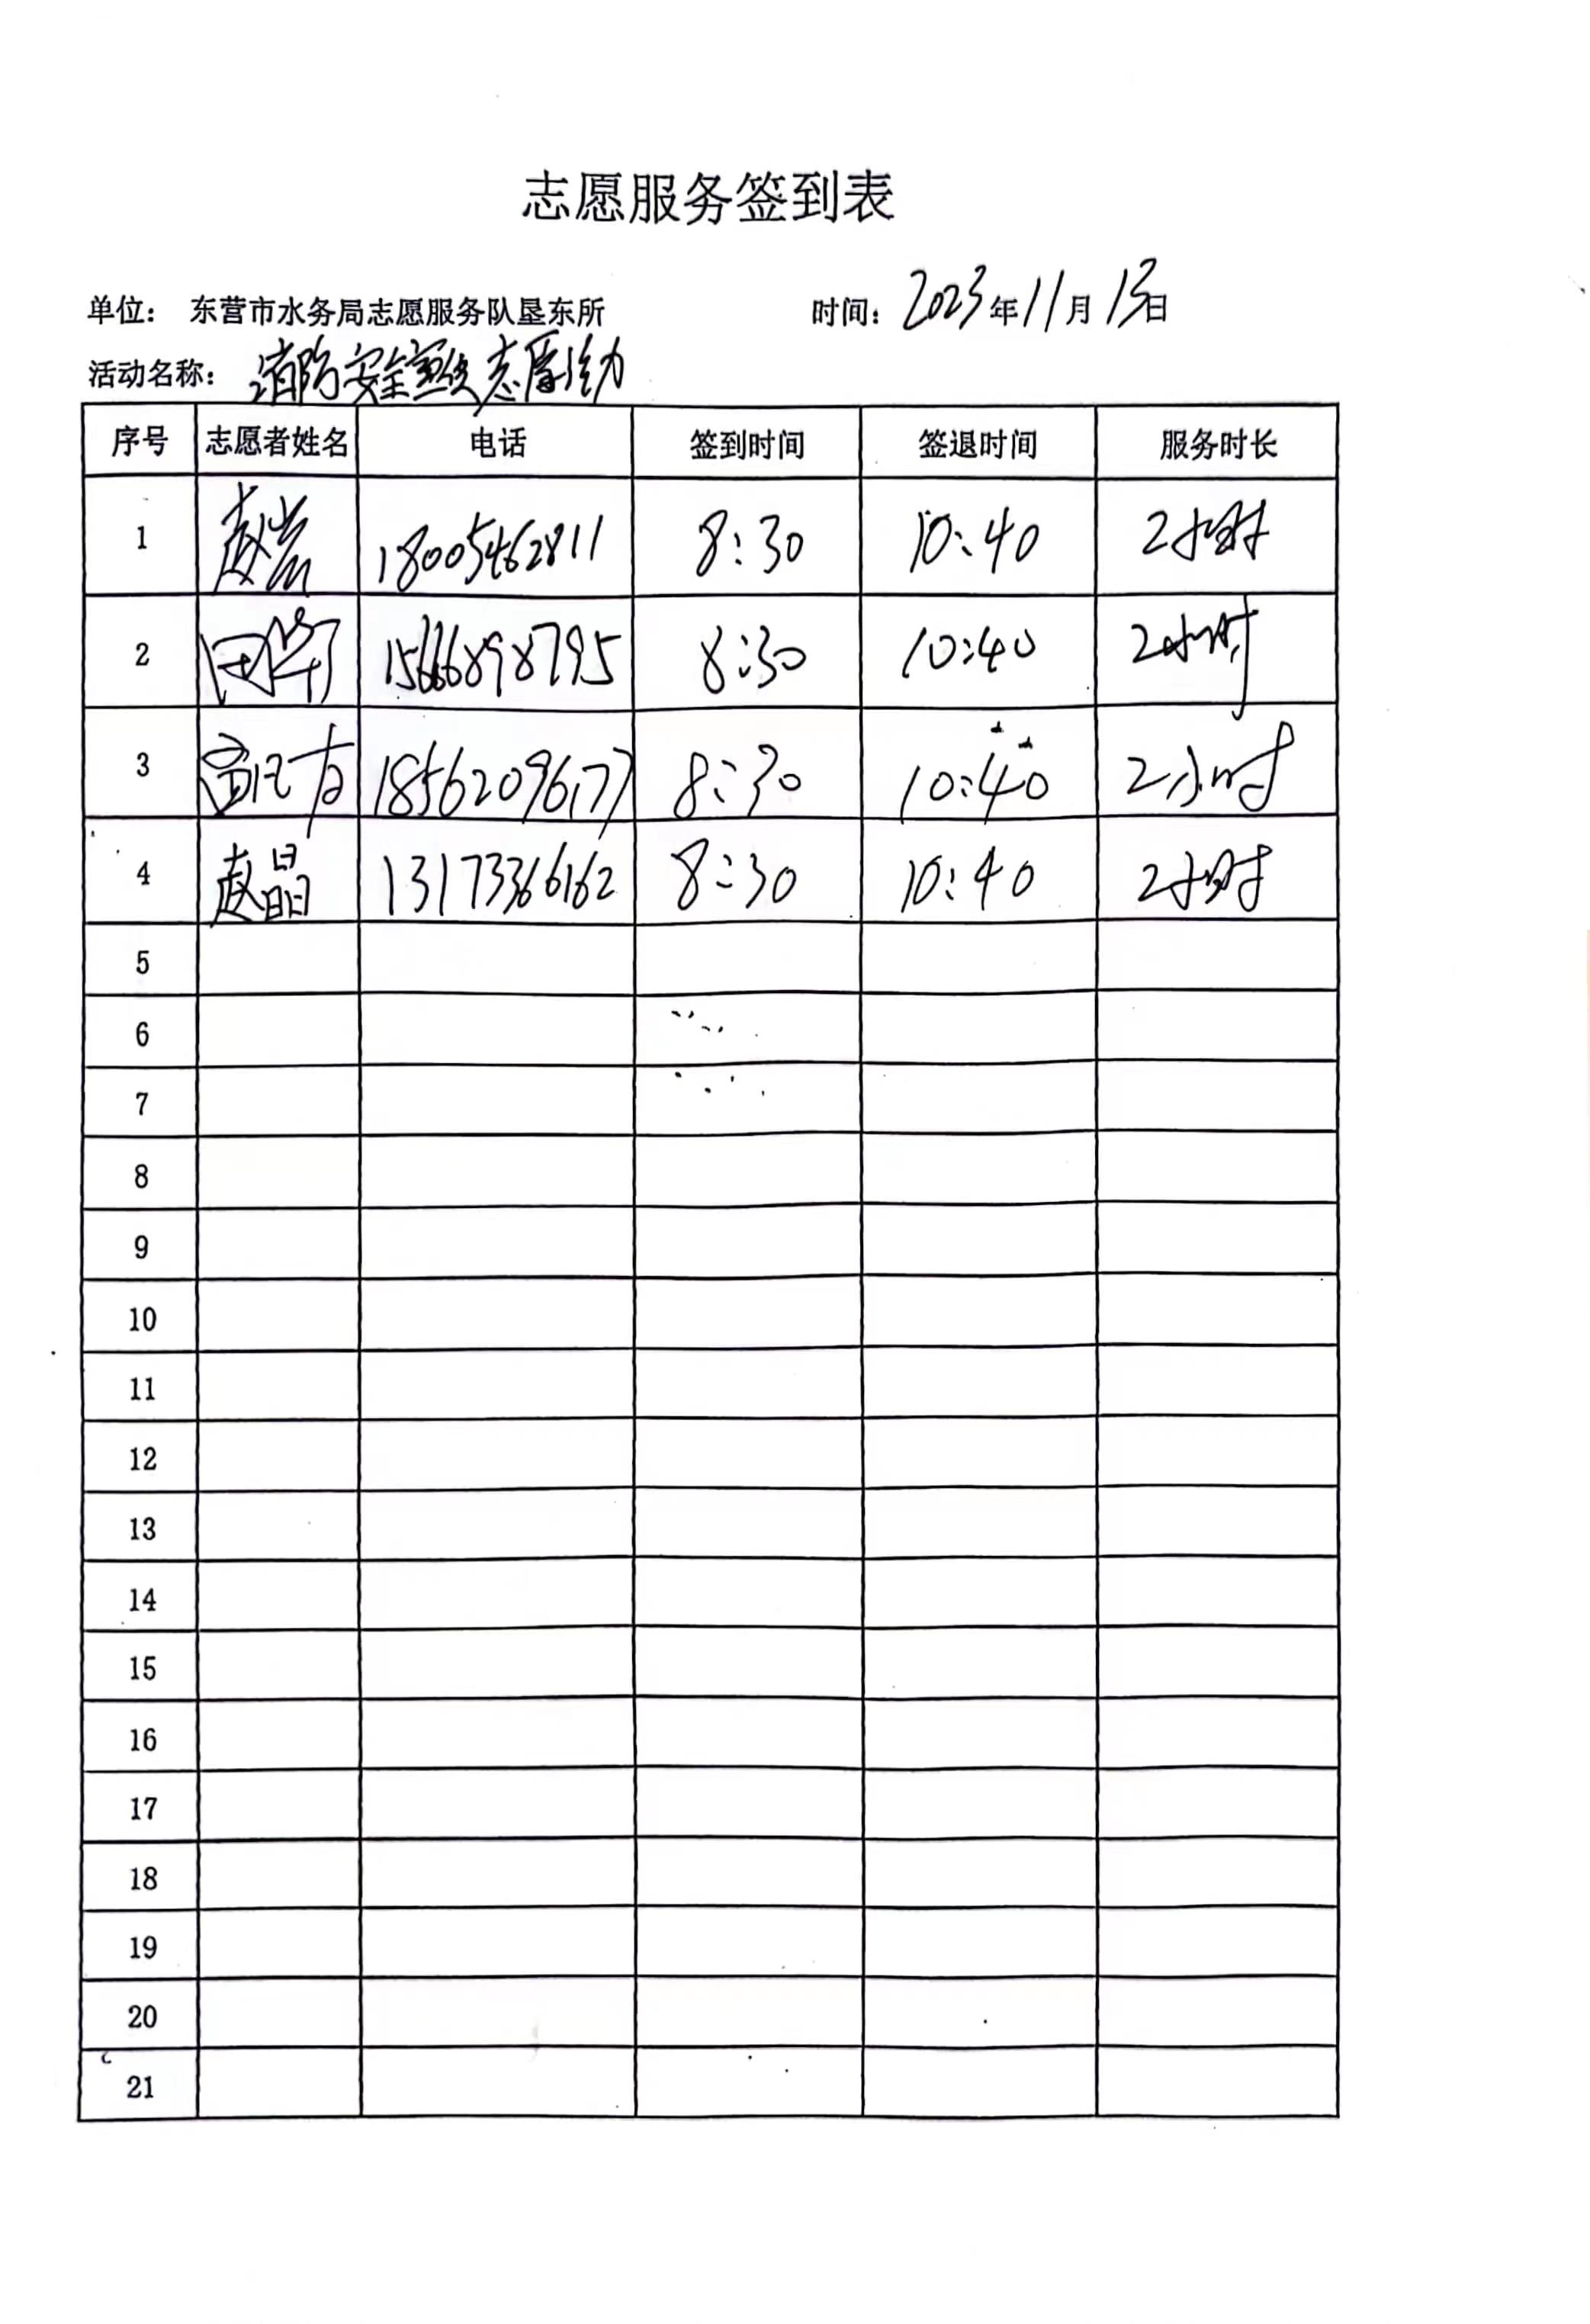 志愿服务签到表
单位： 东营市水务局志愿服务队垦东所 时间：2023年11月13日
活动名称：消防安全宣传志愿活动
序号 志愿者姓名 电话 签到时间 签退时间 服务时长
1 赵岩 18005462811 8:30 10:40 2小时
2 田华 15666898795 8:30 10:40 2小时
3 18562096177 8:30 10:40 2小时
4 赵晶 13173366162 8:30 10:40 2小时
5
6
7
8
9
10
11
12
13
14
15
16
17
18
19
20
21